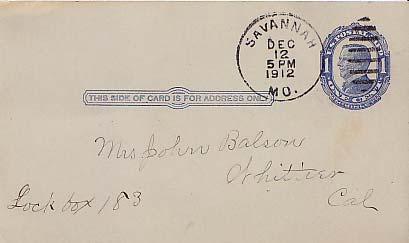 SAVANNAH
DEC
12
5 PM
1912
MO.
1
ONE CENT
THIS SIDE OF CARD IS FOR ADDRESS ONLY
Mrs John Balson
Whittier
Lock box 183 Cal